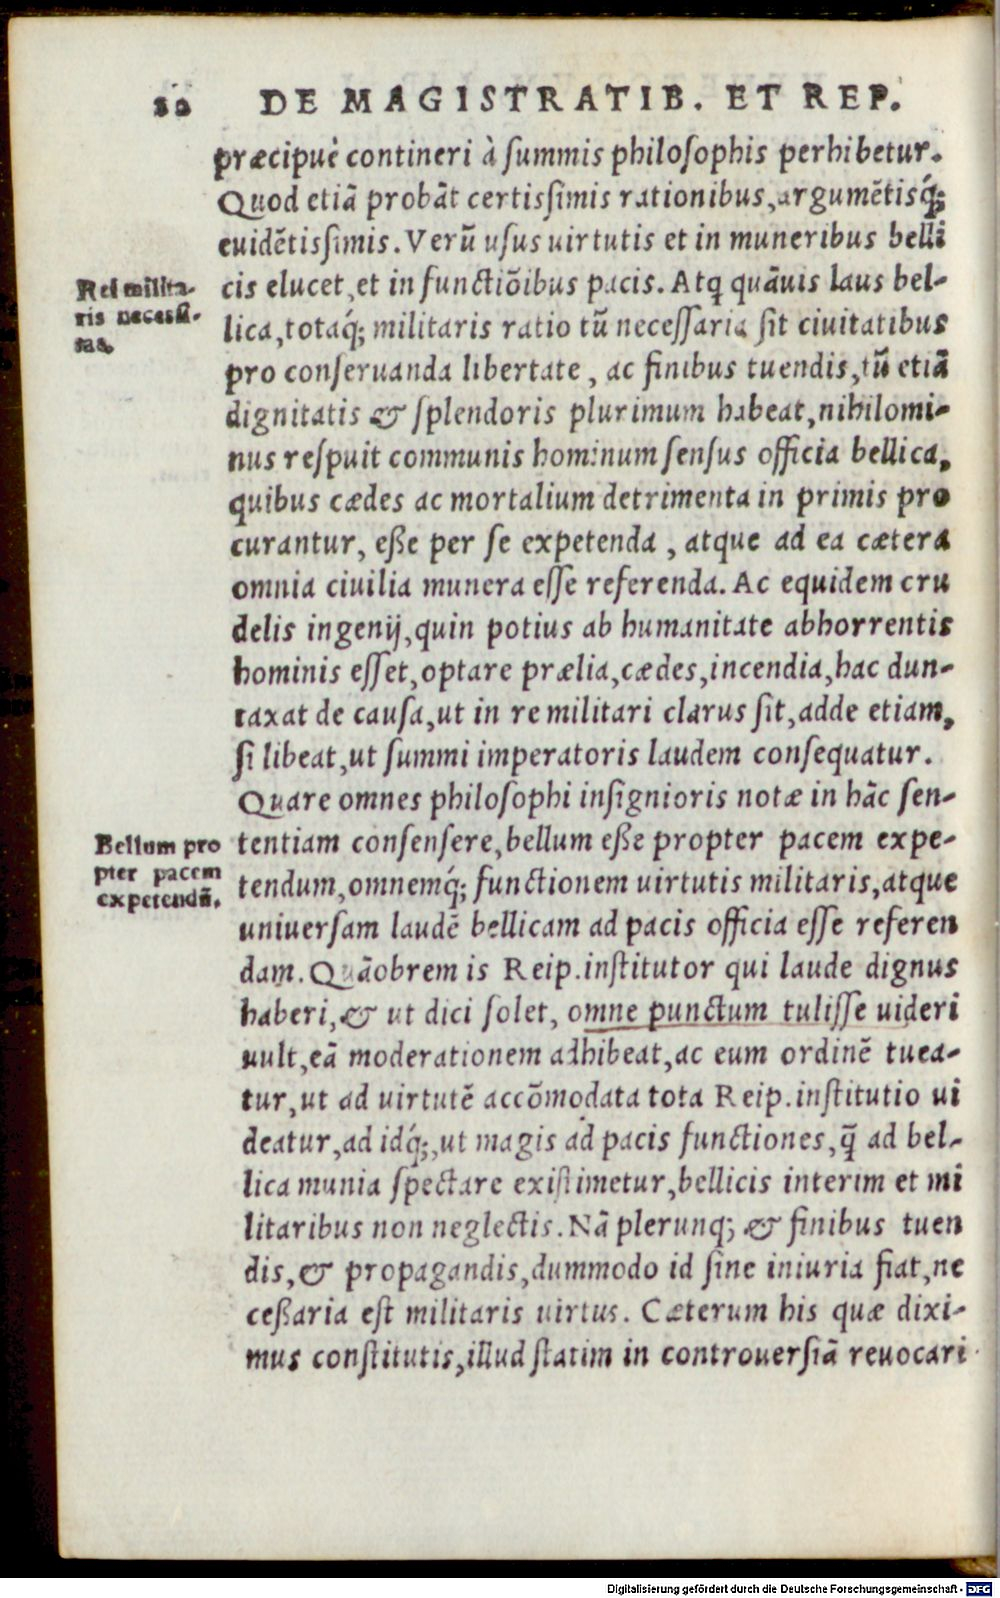 20 DE MAGISTRATIB. ET REP.
præcipuè contineri à ſummis philoſophis perhibetur.
Quod etiā probāt certiſſimis rationibus, argumētisq́;
euidētiſſimis. Verū uſus uirtutis et in muneribus belli
cis elucet, et in functiōibus pacis. Atq; quāuis laus bel-
lica, totaq́; militaris ratio tū neceſſaria ſit ciuitatibus
pro conſeruanda libertate, ac finibus tuendis, tū etiā
dignitatis & ſplendoris plurimum habeat, nihilomi-
nus reſpuit communis hominum ſenſus officia bellica,
quibus cædes ac mortalium detrimenta in primis pro
curantur, eße per ſe expetenda, atque ad ea cætera
omnia ciuilia munera eſſe referenda. Ac equidem cru
delis ingenij, quin potius ab humanitate abhorrentis
hominis eſſet, optare prælia, cædes, incendia, hac dun-
taxat de cauſa, ut in re militari clarus ſit, adde etiam,
ſi libeat, ut ſummi imperatoris laudem conſequatur.
Quare omnes philoſophi inſignioris notæ in hāc ſen-
tentiam conſenſere, bellum eße propter pacem expe-
tendum, omnemq́; functionem uirtutis militaris, atque
uniuerſam laudē bellicam ad pacis officia eſſe referen
dam. Quāobrem is Reip. inſtitutor qui laude dignus
haberi, & ut dici ſolet, omne punctum tuliſſe uideri
uult, eā moderationem adhibeat, ac eum ordinē tuea-
tur, ut ad uirtutē accōmodata tota Reip. inſtitutio ui
deatur, ad idq́;, ut magis ad pacis functiones, q̄ ad bel-
lica munia ſpectare exiſtimetur, bellicis interim et mi
litaribus non neglectis. Nā plerunq; & finibus tuen
dis, & propagandis, dummodo id ſine iniuria fiat, ne
ceßaria eſt militaris uirtus. Cæterum his quæ dixi-
mus conſtitutis, illud ſtatim in controuerſiā reuocari
Rei milita-
ris neceſſi-
tas.
Bellum pro
pter pacem
expetendū.
Digitalisierung gefördert durch die Deutsche Forschungsgemeinschaft - DFG